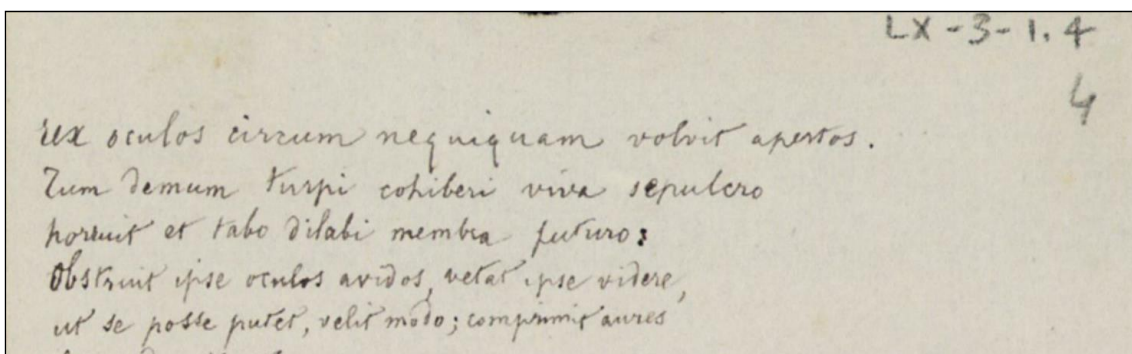 LX-3-1.4
4
rex oculos circum nequiquam volvit apertos.
Tum demum turpi cohiberi viva sepulcro
horruit et tabo dilabi membra futuro:
Obstruit ipse oculos avidos, vetat ipse videre,
ut se posse putet, velit modo; comprimit aures